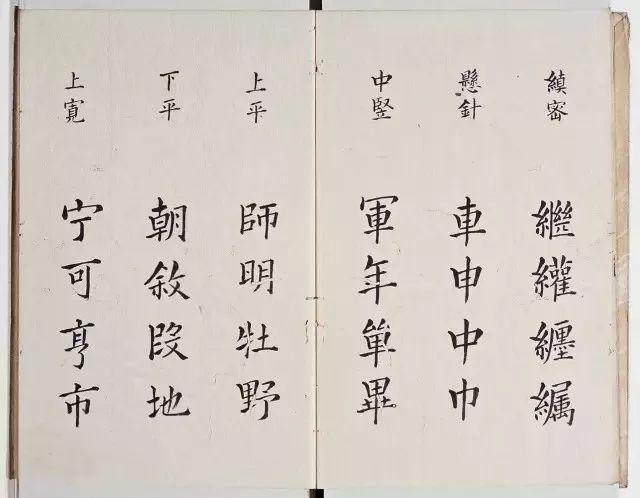 縝密
繼纒
懸針
車申中巾
中竪
軍年單畢
上平
師明牡野
下平
朝敘段地
上寬
宁可亨市